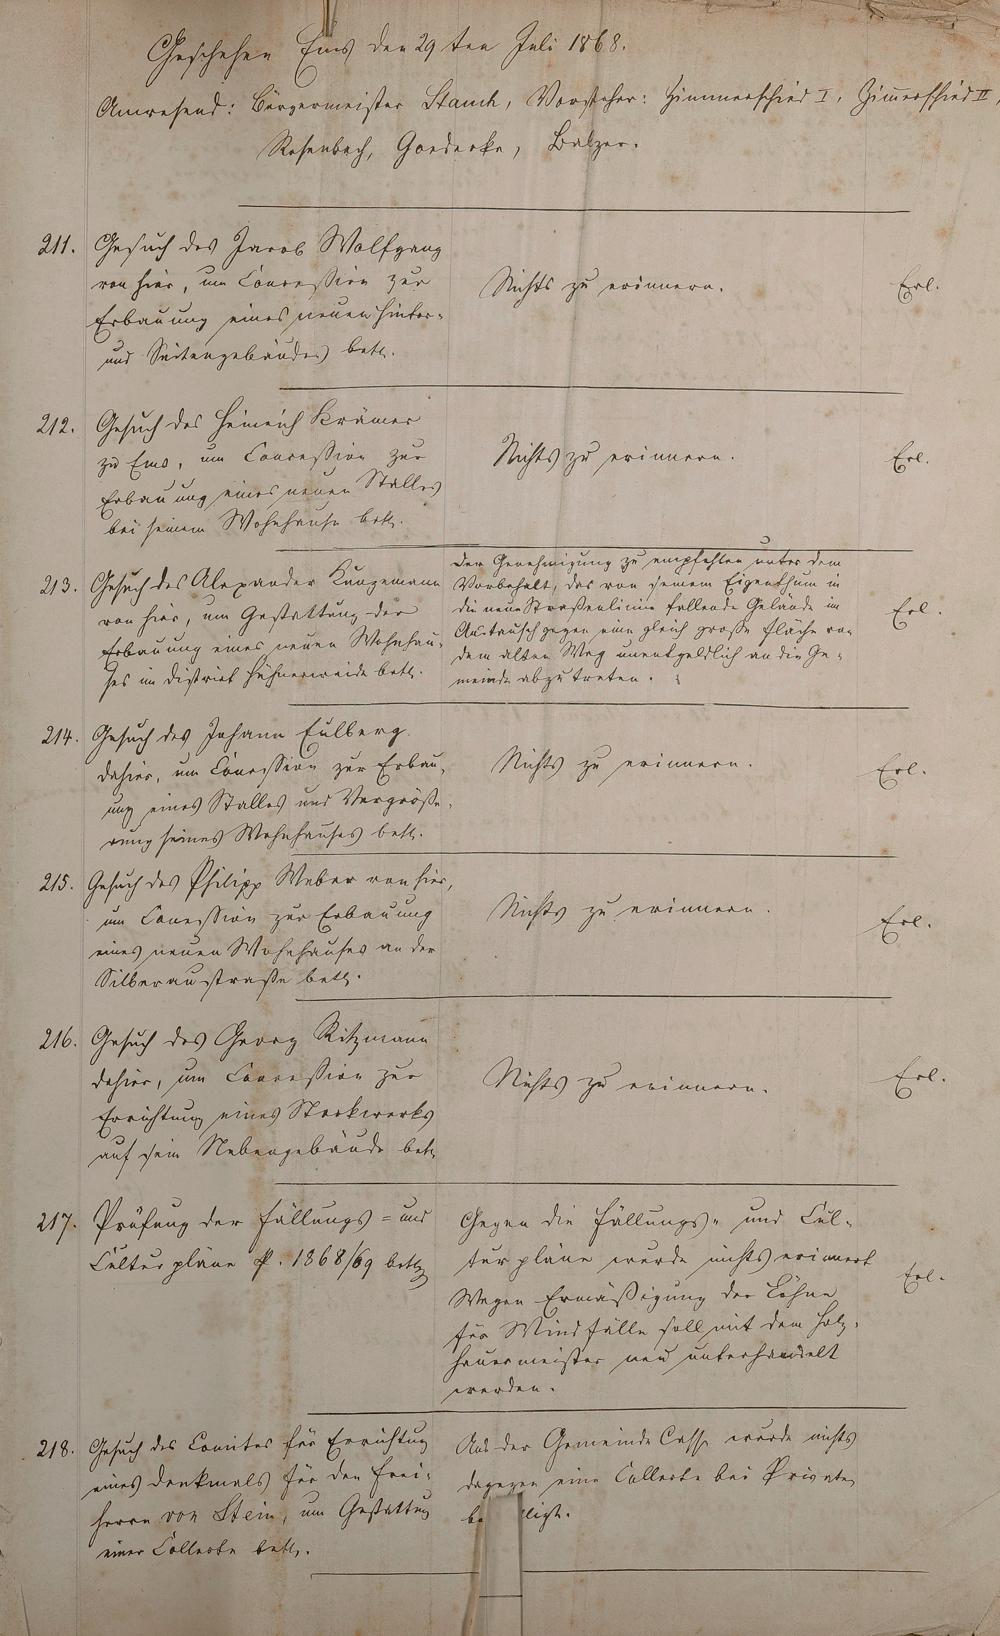 Geschehen Ems den 29ten Juli 1868.
Anwesend: Bürgermeister Stauch, Vorsteher: Zimmerschied I, Zimmerschied II,
Rosenbach, Goedecke, Balzer.
211. Gesuch des Jacob Wolfgang
von hier, um Concession zur
Erbauung eines neuen Hinter-
und Seitengebäudes betr.
Nichts zu erinnern.
Erl.
212. Gesuch des Heinrich Krämer
zu Ems, um Concession zur
Erbauung eines neuen Stalles
bei seinem Wohnhause betr.
Nichts zu erinnern.
Erl.
213. Gesuch des Alexander Kunzemann
von hier, um Gestattung der
Erbauung eines neuen Wohnhau-
ses im District Hühnerweide betr.
Der Genehmigung zu empfehlen unter dem
Vorbehalt, das von seinem Eigenthum in
die neue Straßenlinie fallende Gelände im
Austausch gegen eine gleich große Fläche von
dem alten Weg unentgeldlich an die Ge-
meinde abzutreten.
Erl.
214. Gesuch des Johann Eulberg
dahier, um Concession zur Erbau-
ung eines Stalles und Vergröße-
rung seines Wohnhauses betr.
Nichts zu erinnern.
Erl.
215. Gesuch des Philipp Weber von hier,
um Concession zur Erbauung
eines neuen Wohnhauses an der
Silberaustraße betr.
Nichts zu erinnern.
Erl.
216. Gesuch des Georg Ritzmann
dahier, um Concession zur
Errichtung eines Stockwerks
auf sein Nebengebäude betr.
Nichts zu erinnern.
Erl.
217. Prüfung der Fällungs- und
Culturpläne p. 1868/69 betr.
Gegen die Fällungs- und Cul-
turpläne wurde nichts erinnert
Wegen Ermäßigung der Löhne
für Windfälle soll mit dem Holz-
hauermeister neu unterhandelt
werden.
Erl.
218. Gesuch des Comites für Errichtung
eines Denkmals für den Frei-
herrn von Stein, um Gestattung
einer Collecte betr.
Aus der Gemeinde Casse wurde nichts
dagegen eine Collecte bei Privaten
be lligt.